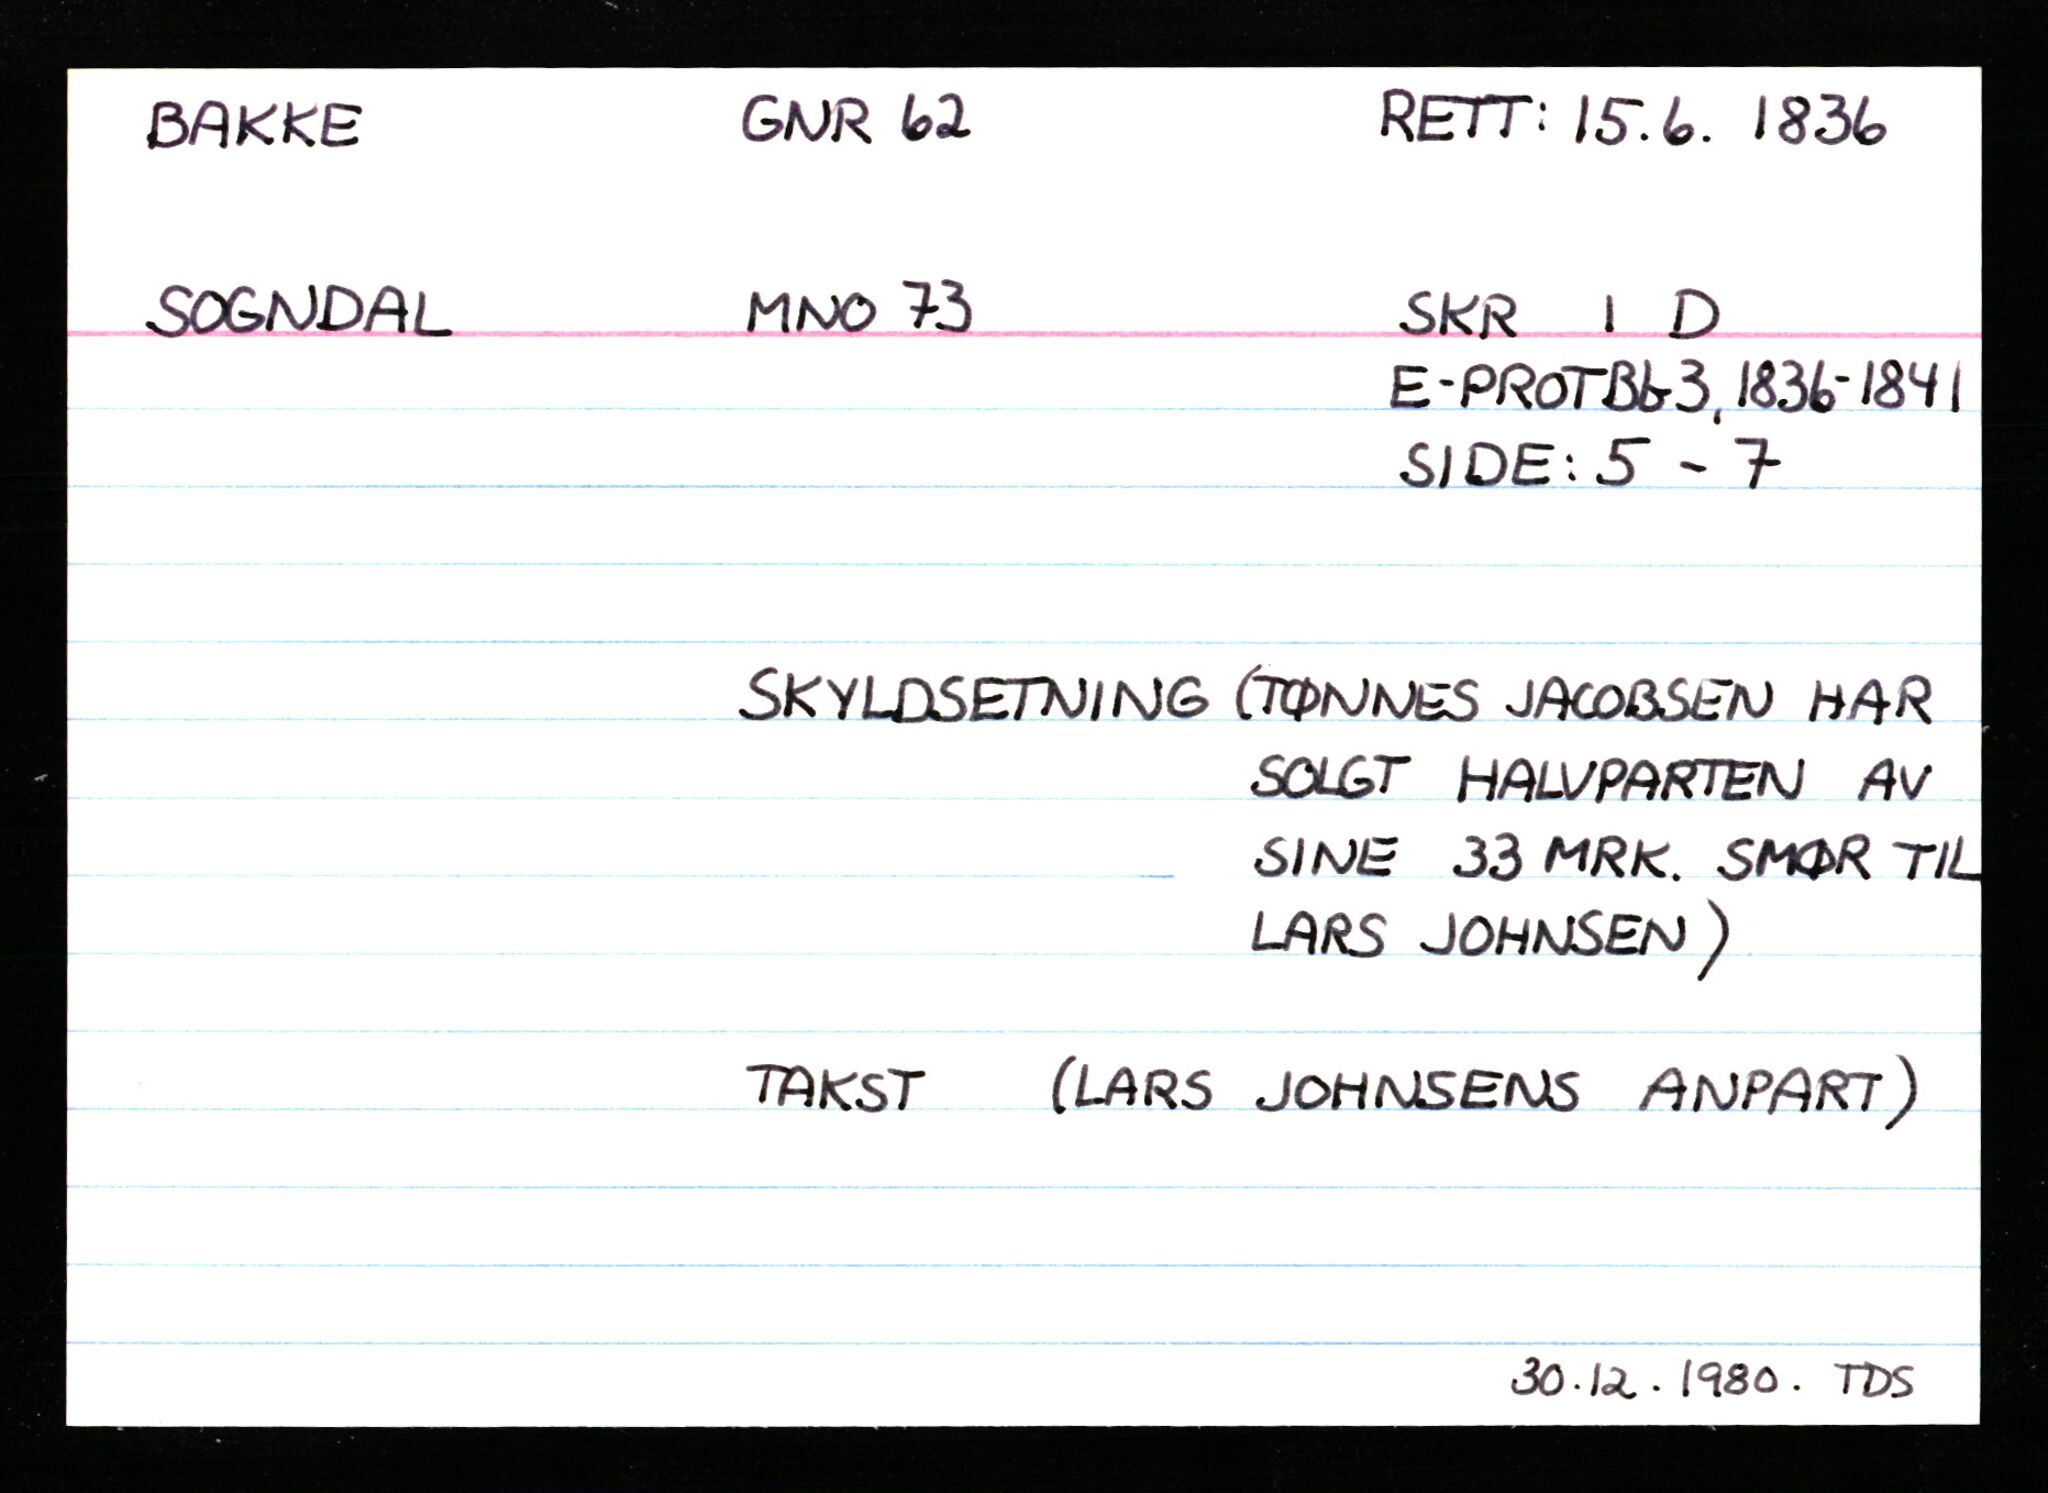 BAKKE GNR 62 RETT: 15.6. 1836
SOGNDAL MNO 73 SKR I D
E-PROTBb3, 1836-1841
SIDE: 5 - 7
SKYLDSETNING (TØNNES JACOBSEN HAR
SOLGT HALVPARTEN AV
SINE 33 MRK. SMØR TIL
LARS JOHNSEN)
TAKST (LARS JOHNSENS ANPART)
30.12.1980. TDS